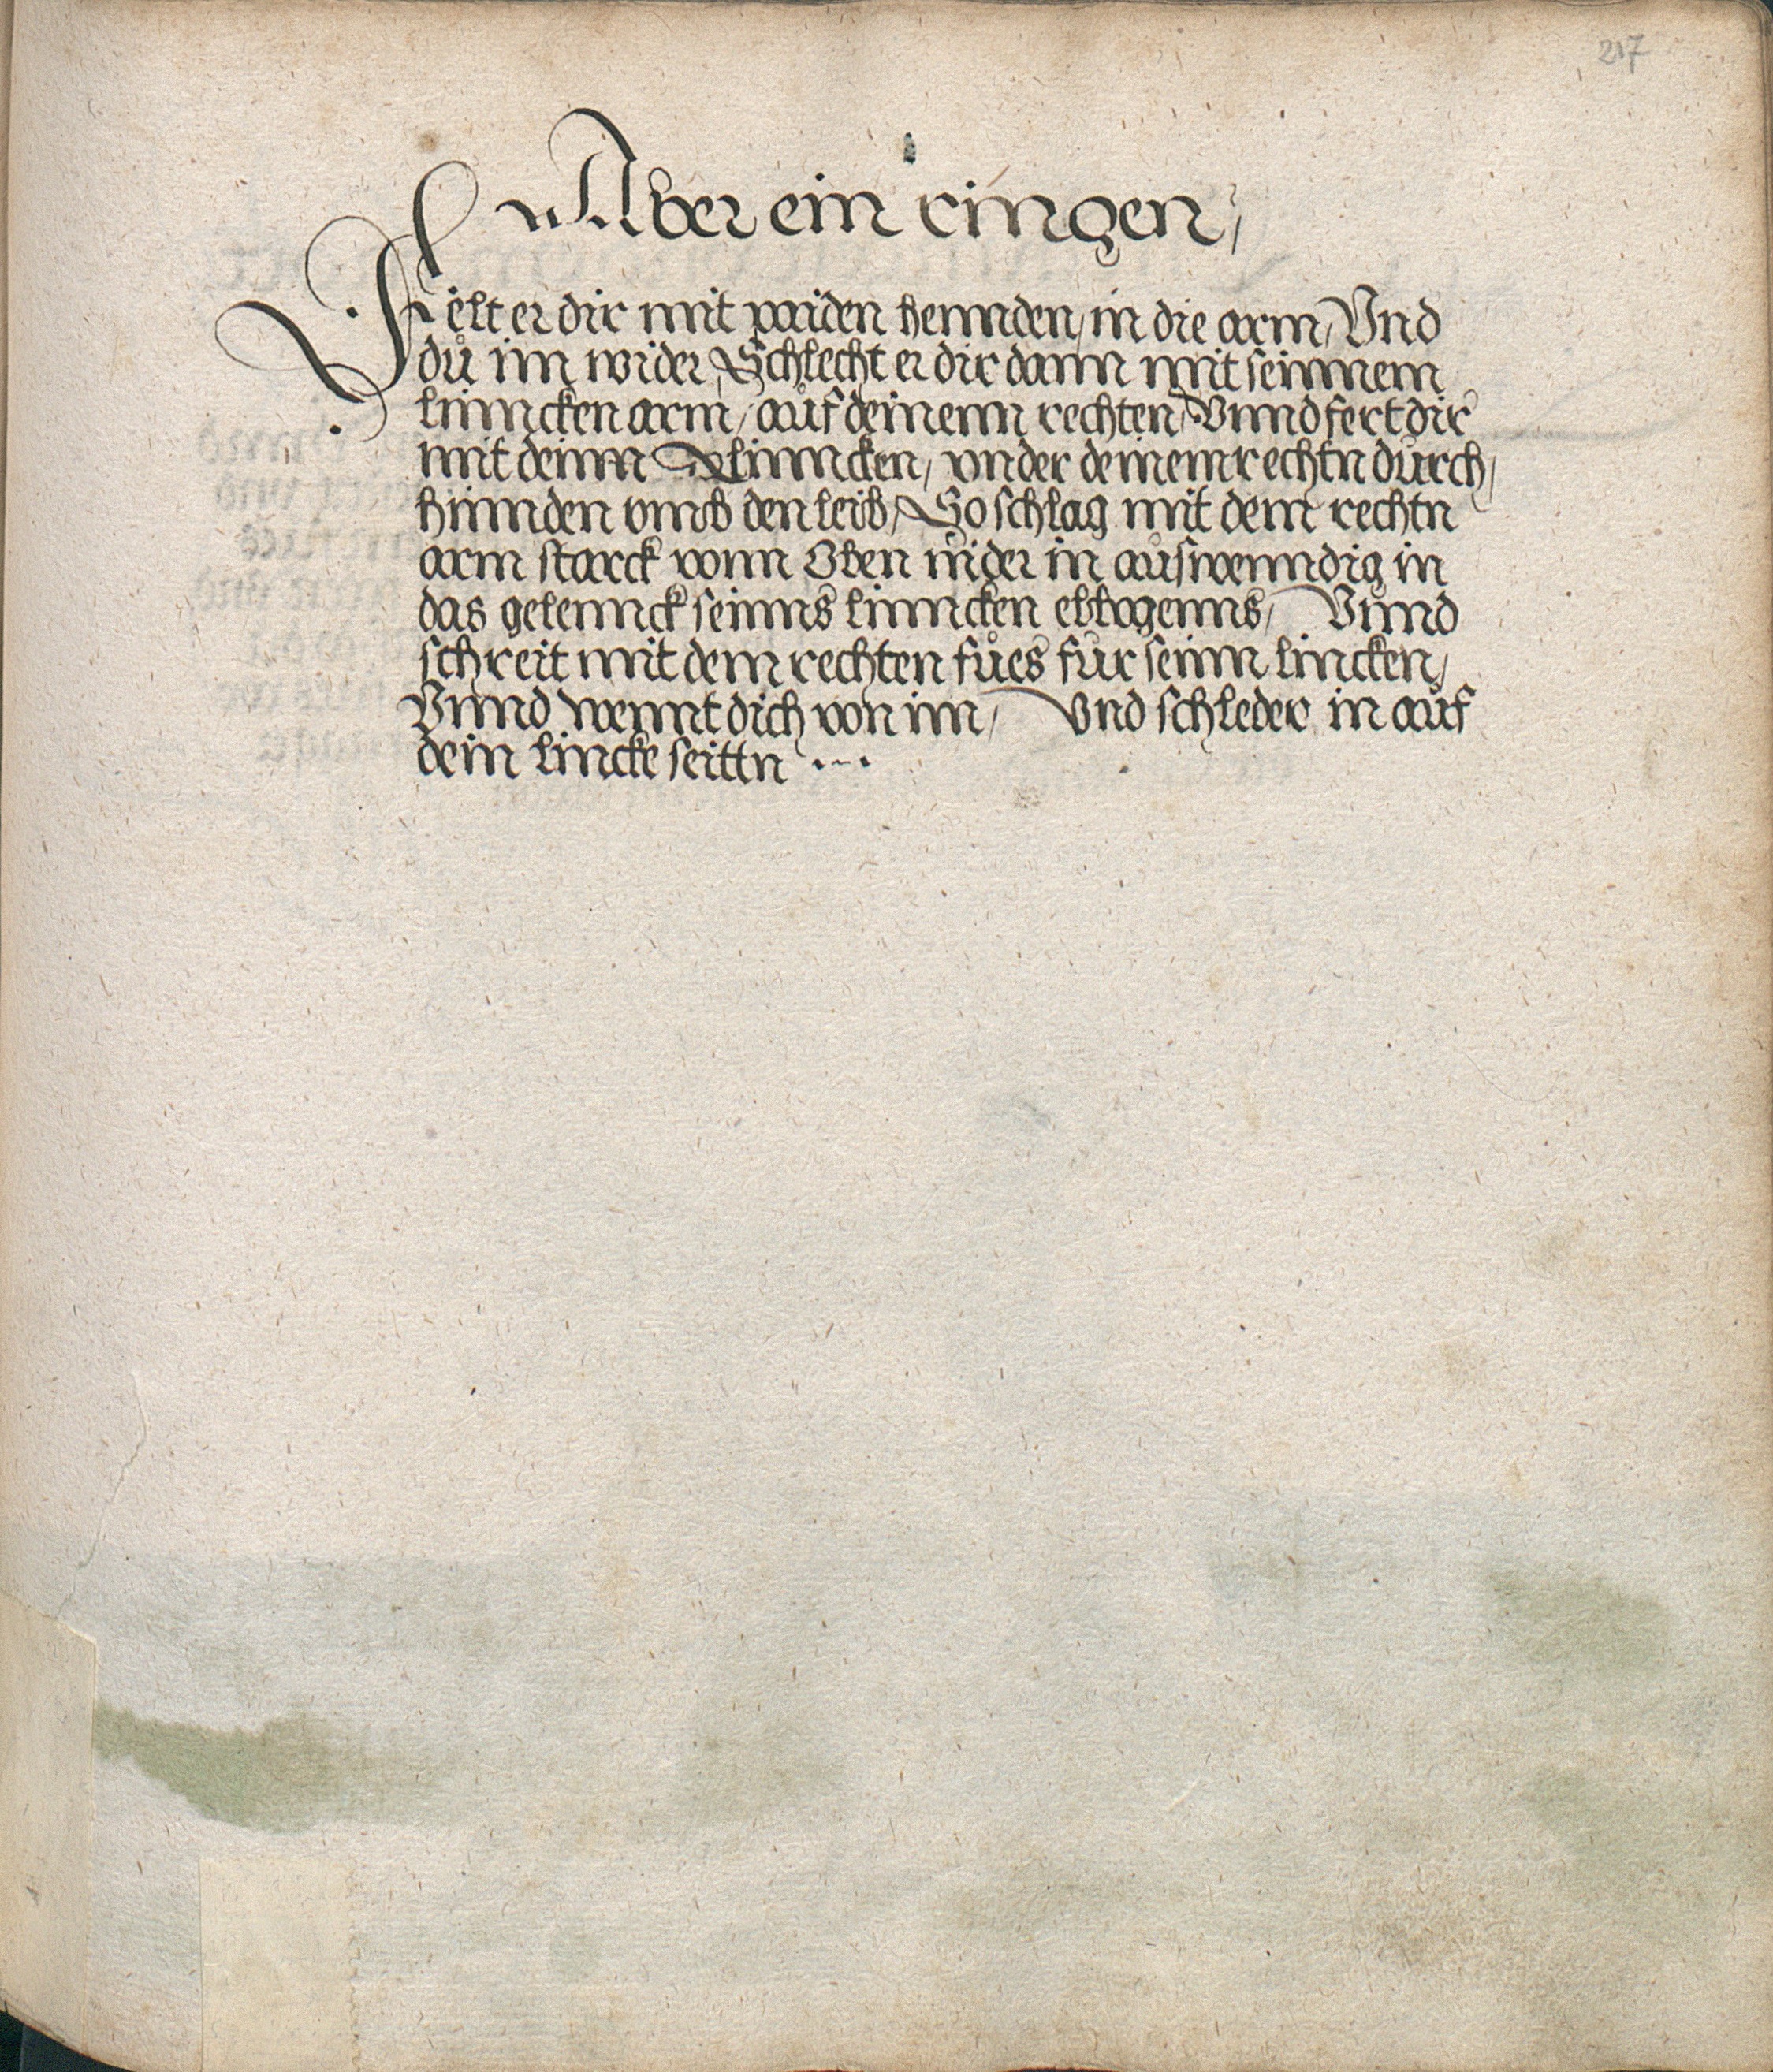 217
Aber ein ringen /
Felt er dir mit paiden hennden / in die arm / Vnd
dů im wider / Schlecht er dir dann mit seinnem
linncken arm / aůf deinenn rechten / Vnnd fert dir
mit deinn linncken / vnder deinem rechtn důrch /
hinnden vmb den leib / So schlag mit dem rechtn
arm starck vonn Oben nider in aůswenndig in
das gelennck seinns linncken ellbogenns / Vnnd
schreit mit dem rechten fůes fůr seinn lincken /
Vnnd wennt dich von im / Vnd schleder in aůf
dein lincke seittn ...